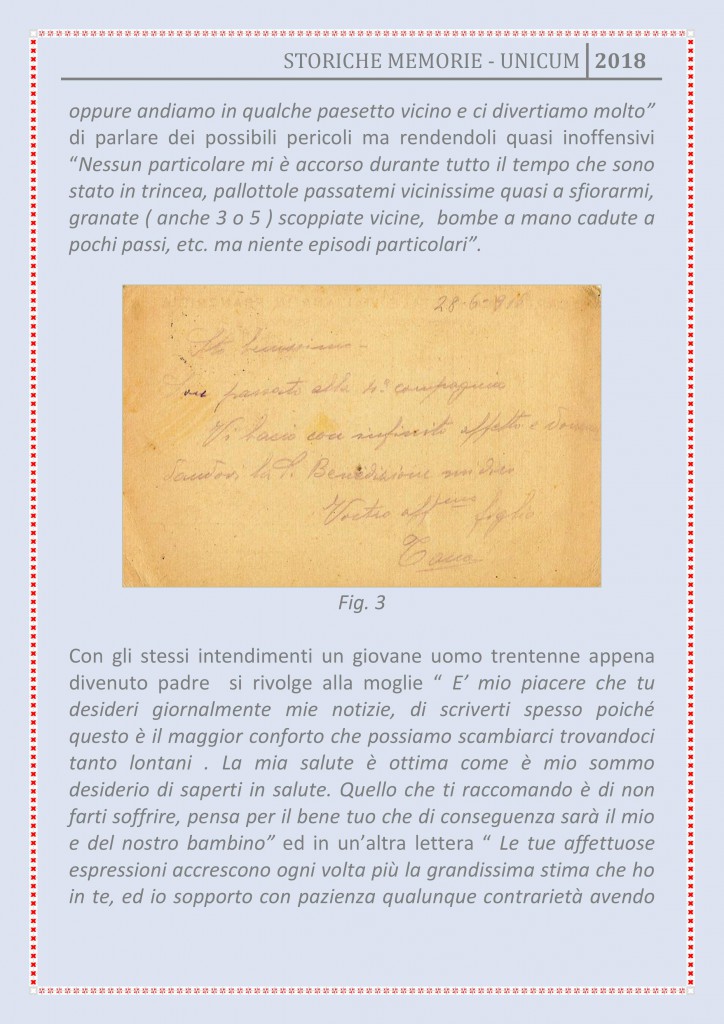 STORICHE MEMORIE - UNICUM 2018
oppure andiamo in qualche paesetto vicino e ci divertiamo molto”
di parlare dei possibili pericoli ma rendendoli quasi inoffensivi
“Nessun particolare mi è accorso durante tutto il tempo che sono
stato in trincea, pallottole passatemi vicinissime quasi a sfiorarmi,
granate ( anche 3 o 5 ) scoppiate vicine, bombe a mano cadute a
pochi passi, etc. ma niente episodi particolari”.
28-6-916
Sto benissimo -
passato alla compagnia
Vi bacio con infinito affetto e
la S. Benedizione mi dico
Vostro aff.mo figlio
Fig. 3
Con gli stessi intendimenti un giovane uomo trentenne appena
divenuto padre si rivolge alla moglie “ E’ mio piacere che tu
desideri giornalmente mie notizie, di scriverti spesso poiché
questo è il maggior conforto che possiamo scambiarci trovandoci
tanto lontani . La mia salute è ottima come è mio sommo
desiderio di saperti in salute. Quello che ti raccomando è di non
farti soffrire, pensa per il bene tuo che di conseguenza sarà il mio
e del nostro bambino” ed in un’altra lettera “ Le tue affettuose
espressioni accrescono ogni volta più la grandissima stima che ho
in te, ed io sopporto con pazienza qualunque contrarietà avendo